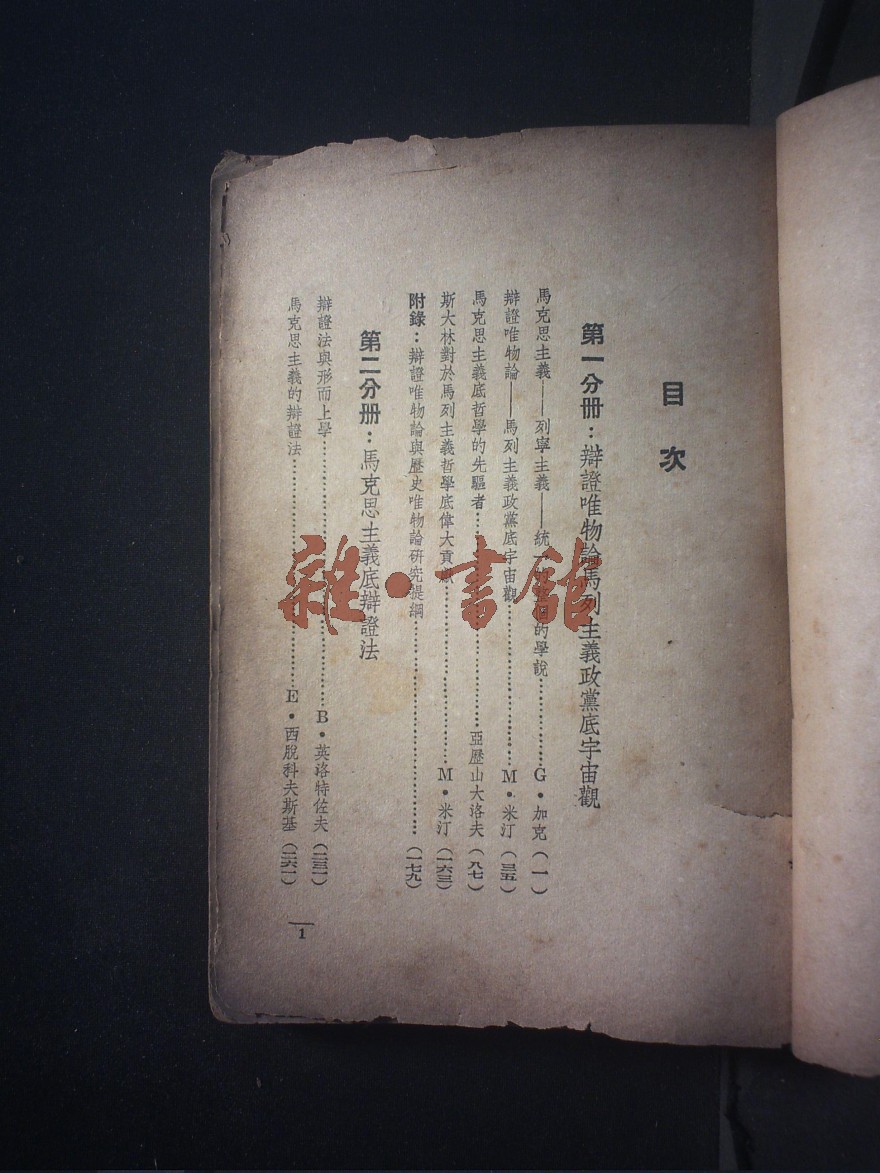 目次
第一分册：辯證唯物論馬列主義政黨底宇宙觀
馬克思主義——列寧主義——統一的學說………………G·加克（一）
辯證唯物論——馬列主義政黨底宇宙觀………………M·米汀（三五）
馬克思主義底哲學的先驅者………………亞歷山大洛夫（八七）
斯大林對於馬列主義哲學底偉大貢獻………………M·米汀（一六三）
附錄：辯證唯物論與歷史唯物論研究提綱………………（一七九）
第二分册：馬克思主義底辯證法
辯證法與形而上學………………B·英洛特佐夫（二三一）
馬克思主義的辯證法………………E·西脫科夫斯基（二六一）
1
雜·書館